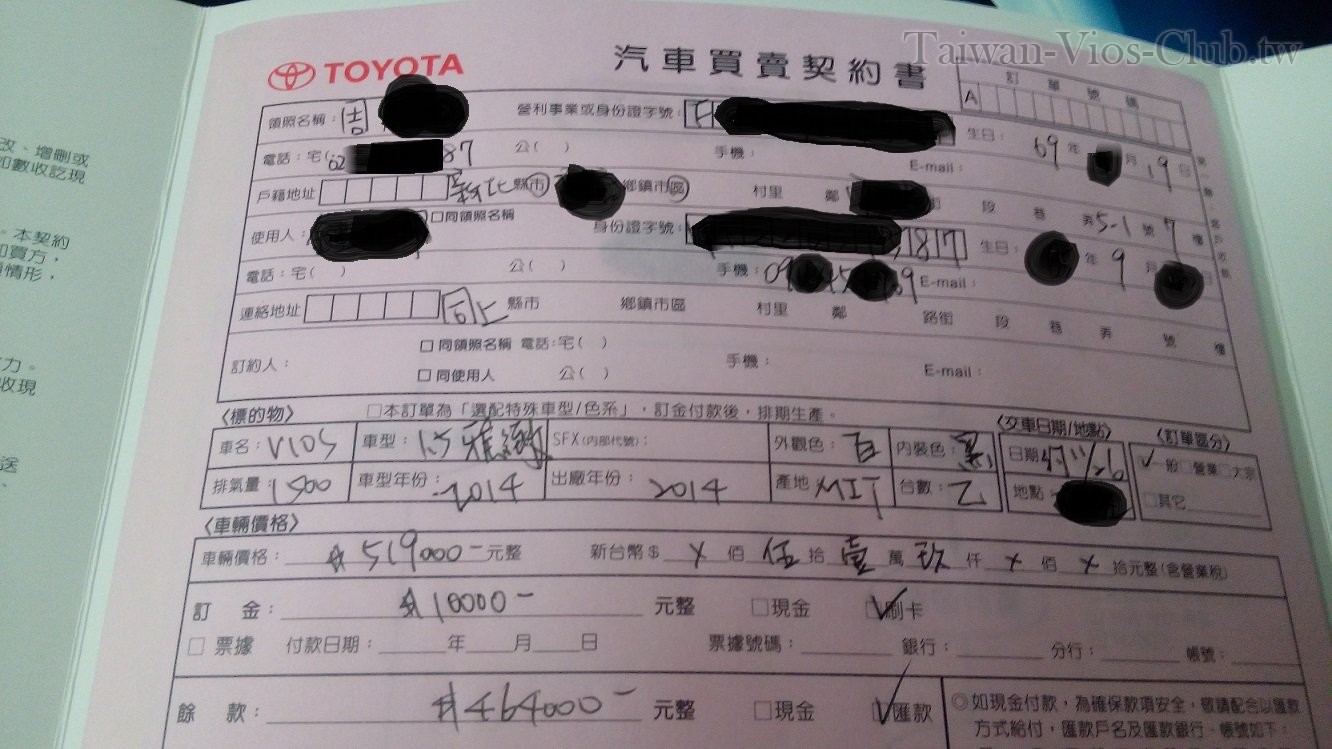 Taiwan-Vios-Club.tw
TOYOTA 汽車買賣契約書
訂單號碼
A
領照名稱： 營利事業或身份證字號： 生日：69年 月19日
電話：宅(02 87 公( ) 手機： E-mail：
戶籍地址 新北縣市 鄉鎮市區 村里 鄰 街 段 巷 弄5-1號7樓
使用人： □同領照名稱 身份證字號： 187 生日： 年9月 日
電話：宅( ) 公( ) 手機：09 5 9 E-mail：
連絡地址 同上 縣市 鄉鎮市區 村里 鄰 路街 段 巷 弄 號 樓
訂約人： □同領照名稱 電話：宅( ) 手機： E-mail：
□同使用人 公( )
〈標的物〉 □本訂單為「選配特殊車型/色系」，訂金付款後，排期生產。 〈交車日期/地點〉 〈訂單區分〉
車名：VIOS 車型：1.5雅緻 SFX(內部代號)： 外觀色：白 內裝色：黑 日期 11/26 ✓一般□營業□大宗
排氣量：1500 車型年份：2014 出廠年份：2014 產地 MIT 台數： 地點： □其它
〈車輛價格〉
車輛價格：$519000-元整 新台幣$ X 佰 伍 拾 壹 萬 玖 仟 X 佰 X 拾元整(含營業稅)
訂 金：$10000- 元整 □現金 ✓刷卡
□票據 付款日期： 年 月 日 票據號碼： 銀行： 分行： 帳號：
餘 款：$464000- 元整 □現金 ✓匯款 ◎如現金付款，為確保款項安全，敬請配合以匯款
方式給付，匯款戶名及匯款銀行、帳號如下：
改、增刪或
如數收訖現
。本契約
和買方，
情形，
力。
收現
送